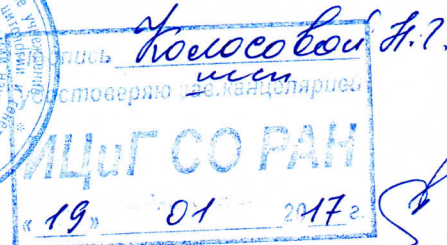 Подпись Колосовой Н.Г.
удостоверяю зав.канцелярией
ИЦиГ СО РАН
« 19 » 01 2017 г.